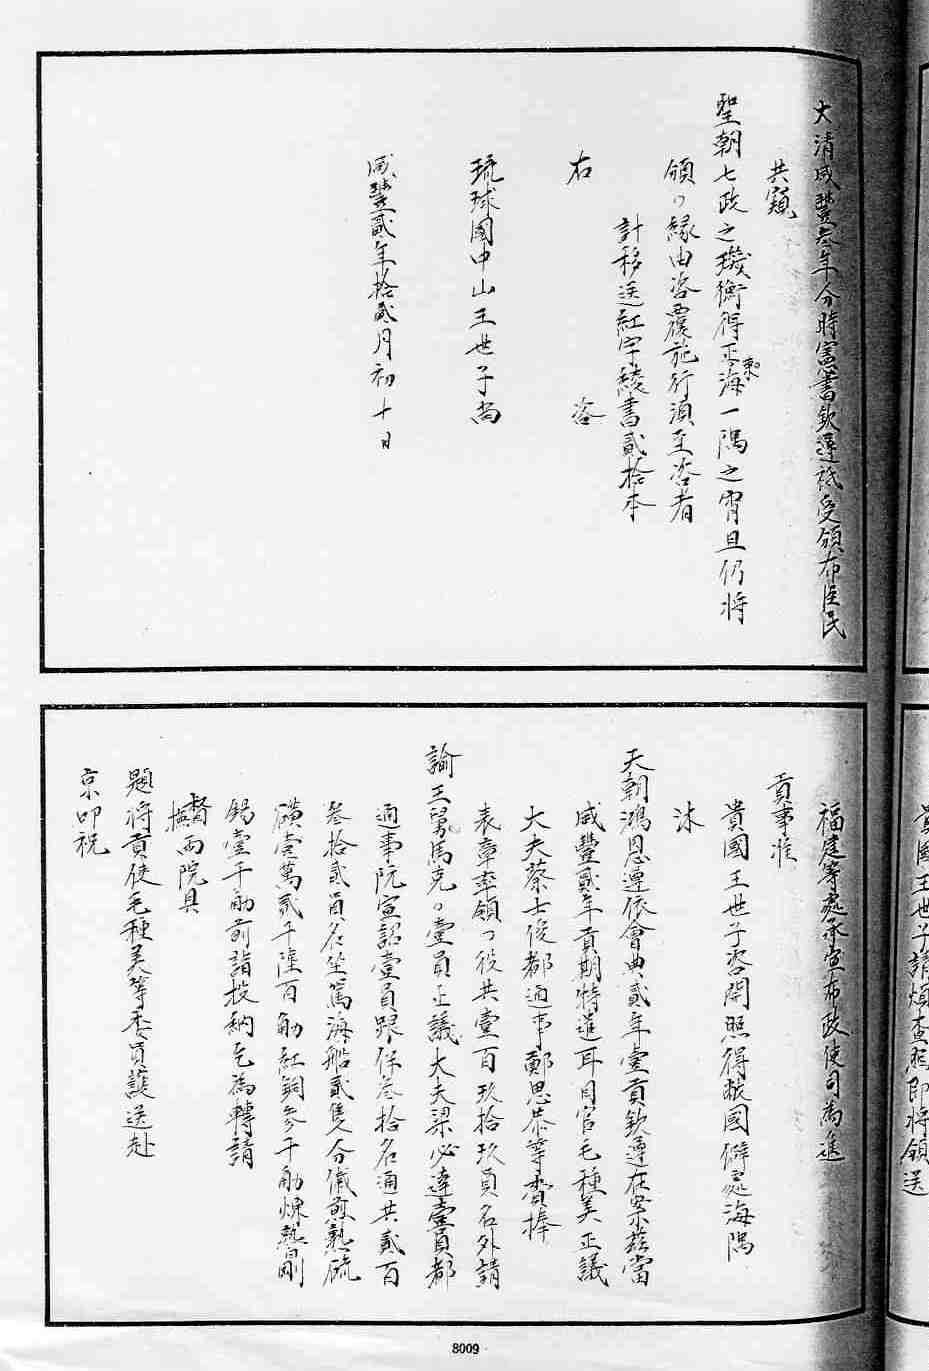 大清咸豐叁年分時憲書欽遵祗受頒布臣民
共窺
聖朝七政之璣衡得正海東一隅之宵旦仍將
領ゝ緣由咨覆施行須至咨者
計移送紅字綾書貳拾本
右 咨
琉球國中山王世子尚
咸豐貳年拾貳月初十日
福建等處承宣布政使司為進
貢事准
貴國王世子咨開照得敝國僻處海隅
沐
天朝鴻恩遵依會典貳年壹貢欽遵在案茲當
咸豐貳年貢期特進耳目官毛種美正議
大夫蔡士俊都通事鄭思恭等齊捧
表章率領ゝ役共壹百玖拾玖員名外請
諭王舅馬克ゝ壹員正議大夫梁必達壹員都
通事阮宣詔壹員跟伴叁拾名通共貳百
叁拾貳員名坐駕海船貳隻分儎煎熟硫
磺壹萬貳千陸百觔紅銅參千觔煉熟白剛
錫壹千觔前詣投納乞為轉請
督撫兩院具
題將貢使毛種美等委員護送赴
京叩祝
貴國王世子請煩查照即將領送
8009